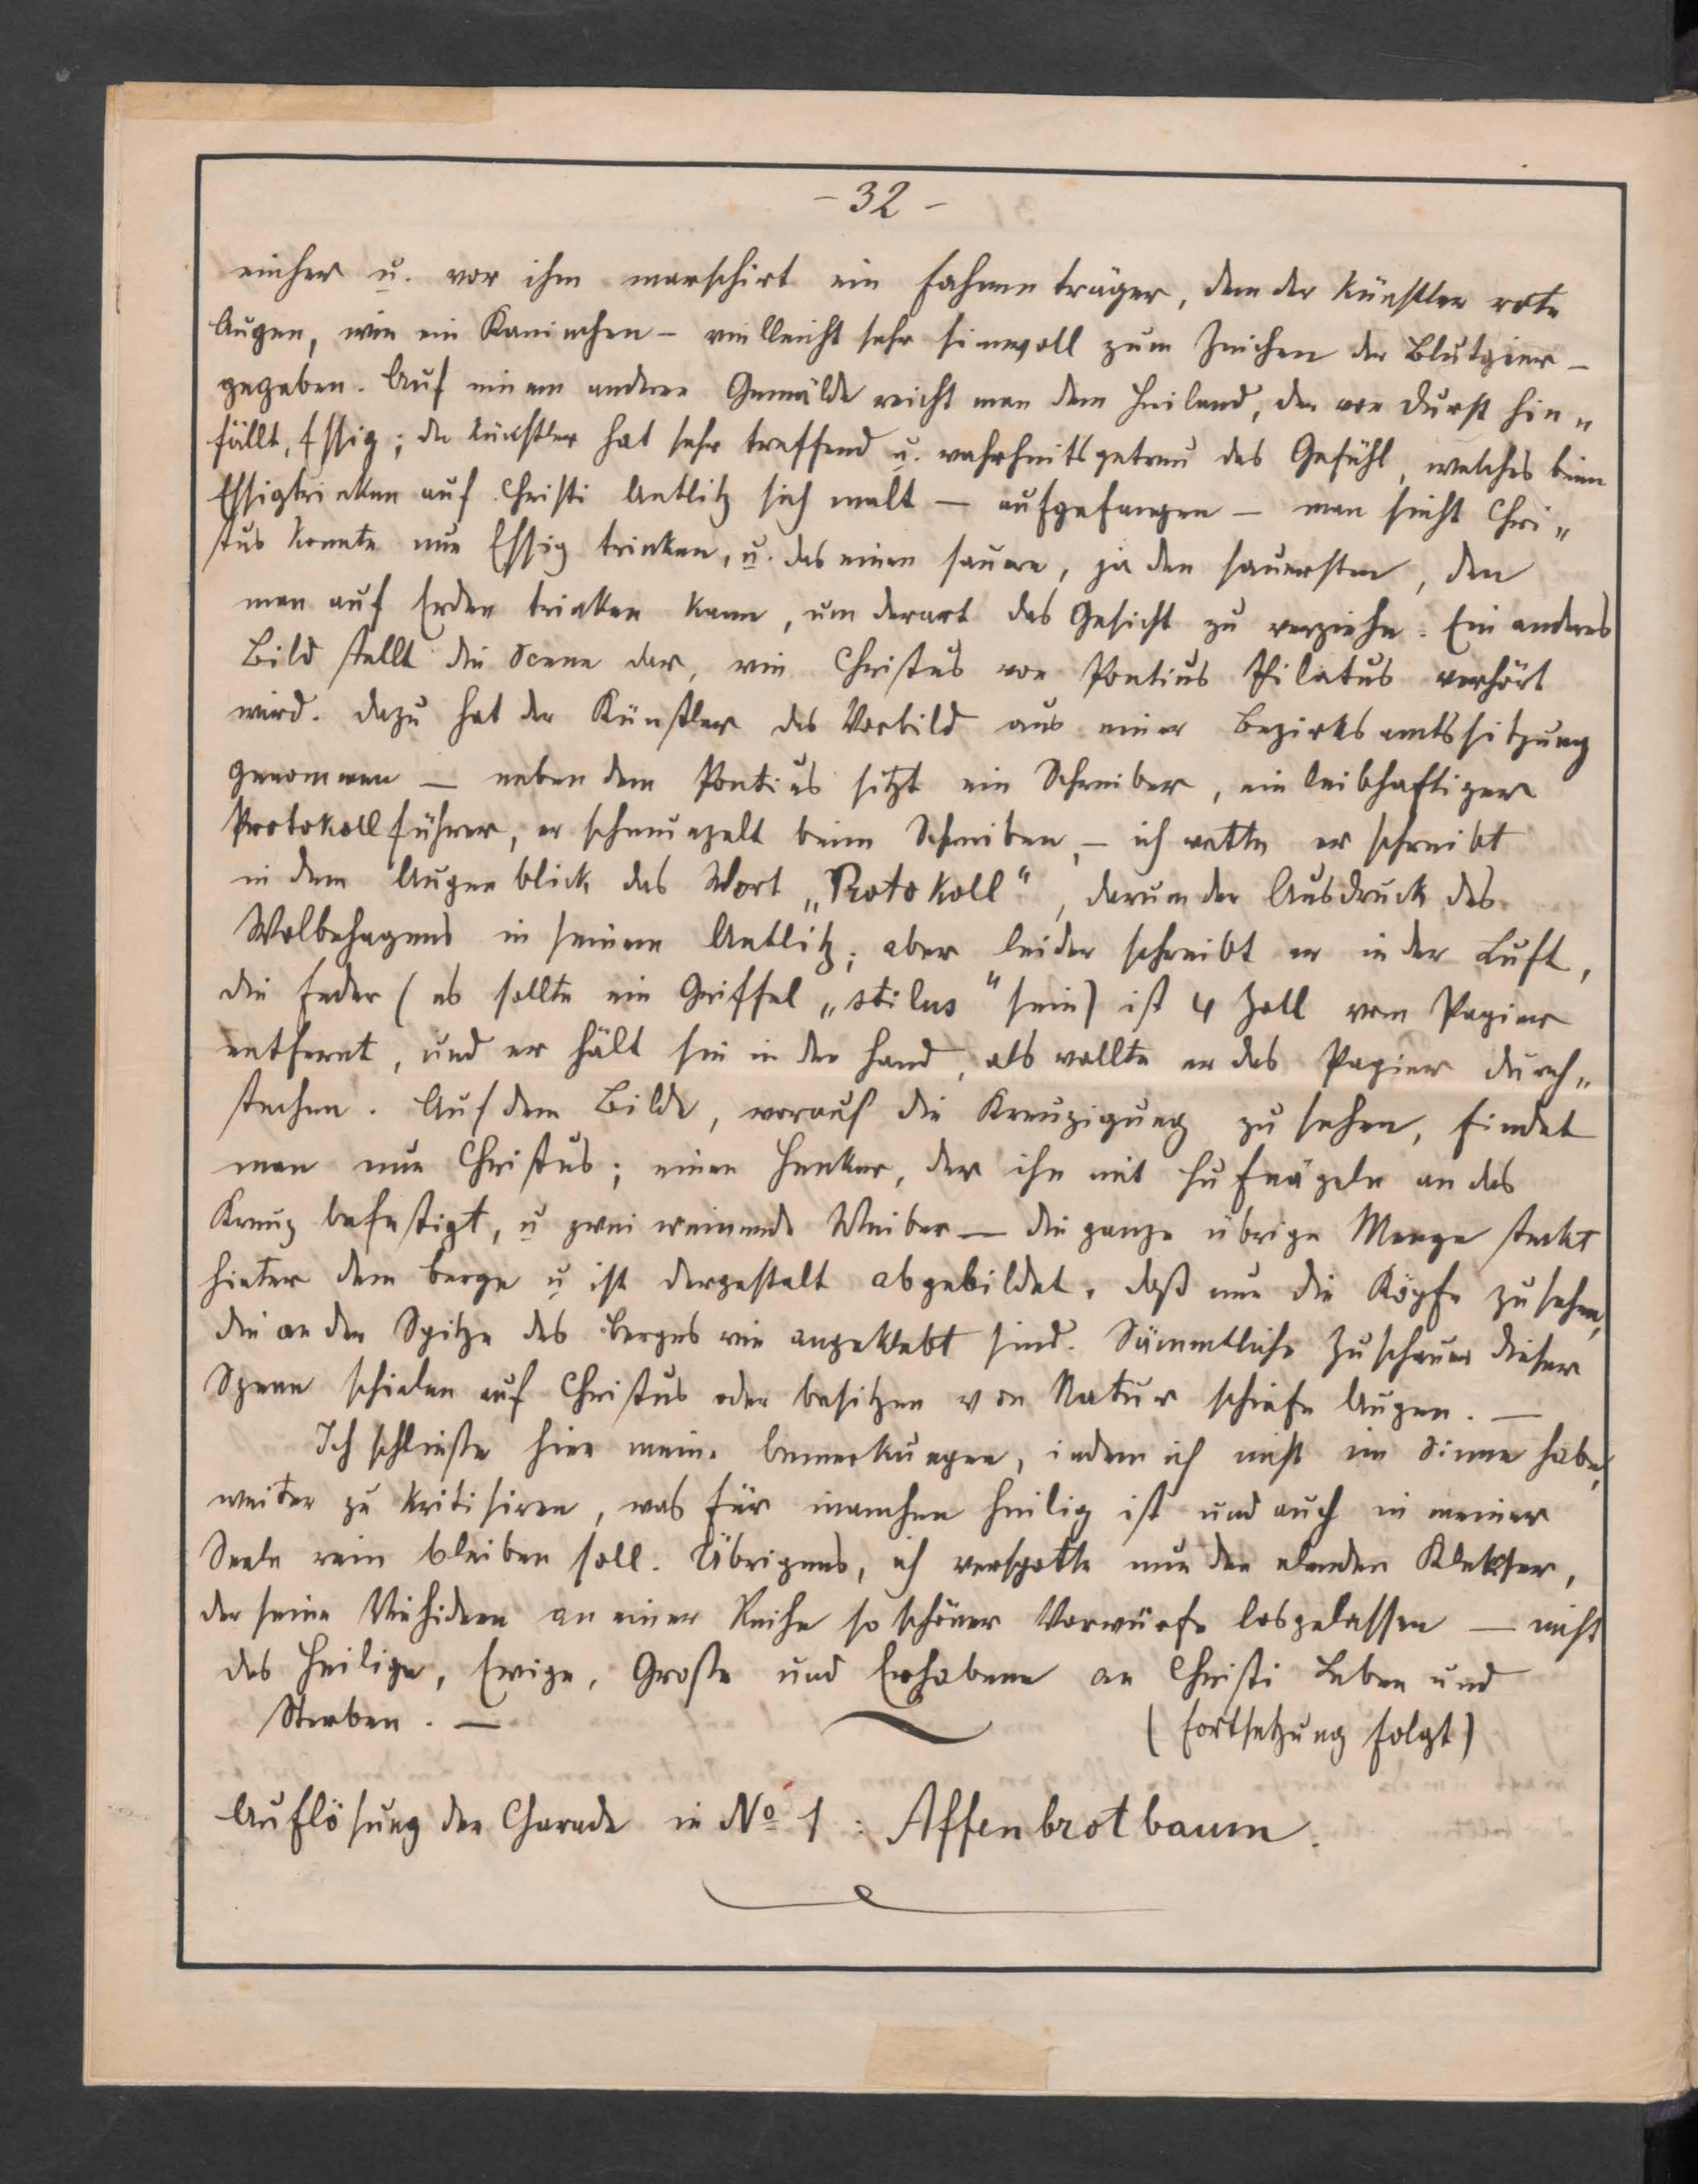 - 32 -
einher u. vor ihm marschirt ein Fahnenträger, dem der Künstler rote
Augen, wie ein Kaninchen - vielleicht sehr sinnvoll zum Zeichen der Blutgier -
gegeben. Auf einem andern Gemälde reicht man dem Heiland, der vor Durst hin„
fällt, Essig; der Künstler hat sehr treffend u. wahrheitsgetreu das Gefühl, welches beim
Essigtrinken auf Christi Antlitz sich malt — aufgefangen — man sieht Chri„
stus konnte nur Essig trinken, u. das einen sauren, ja den sauersten, den
man auf Erden trinken kann, um derart das Gesicht zu verziehn. Ein anderes
Bild stellt die Scene dar, wie Christus von Pontius Pilatus verhört
wird. Dazu hat der Künstler das Vorbild aus einer Bezirksamtssitzung
genommen — neben dem Pontius sitzt ein Schreiber, ein leibhaftiger
Protokollführer, er schmunzelt beim Schreiben, - ich wette er schreibt
in dem Augenblick das Wort „Protokoll“, darum der Ausdruck des
Wolbehagens in seinem Antlitz; aber leider schreibt er in der Luft,
die Feder (es sollte ein Griffel „stilus“ sein) ist 4 Zoll vom Papier
entfernt, und er hält sie in der Hand, als wollte er das Papier durch„
stechen. Auf dem Bilde, worauf die Kreuzigung zu sehen, findet
man nur Christus; einen Henker, der ihn mit Hufnägeln an das
Kreuz befestigt, u zwei weinende Weiber — die ganze übrige Menge steckt
hinter dem Berge u ist dergestalt abgebildet, daß nur die Köpfe zu sehen,
die an der Spitze des Berges wie angeklebt sind. Sämmtliche Zuschauer dieser
Szene schielen auf Christus oder besitzen von Natur schiefe Augen. —
Ich schließe hier meine Bemerkungen, indem ich nicht im Sinne habe,
weiter zu kritisiren, was für manchen heilig ist und auch in meiner
Seele rein bleiben soll. Übrigens, ich verspotte nur den elenden Kleckser,
der seine Viehideen an einer Reihe so schöner Vorwürfe losgelassen — nicht
das Heilige, Ewige, Große und Erhabene an Christi Leben und
Sterben. —
(Fortsetzung folgt)
Auflösung der Charade in No 1 : Affenbrotbaum.